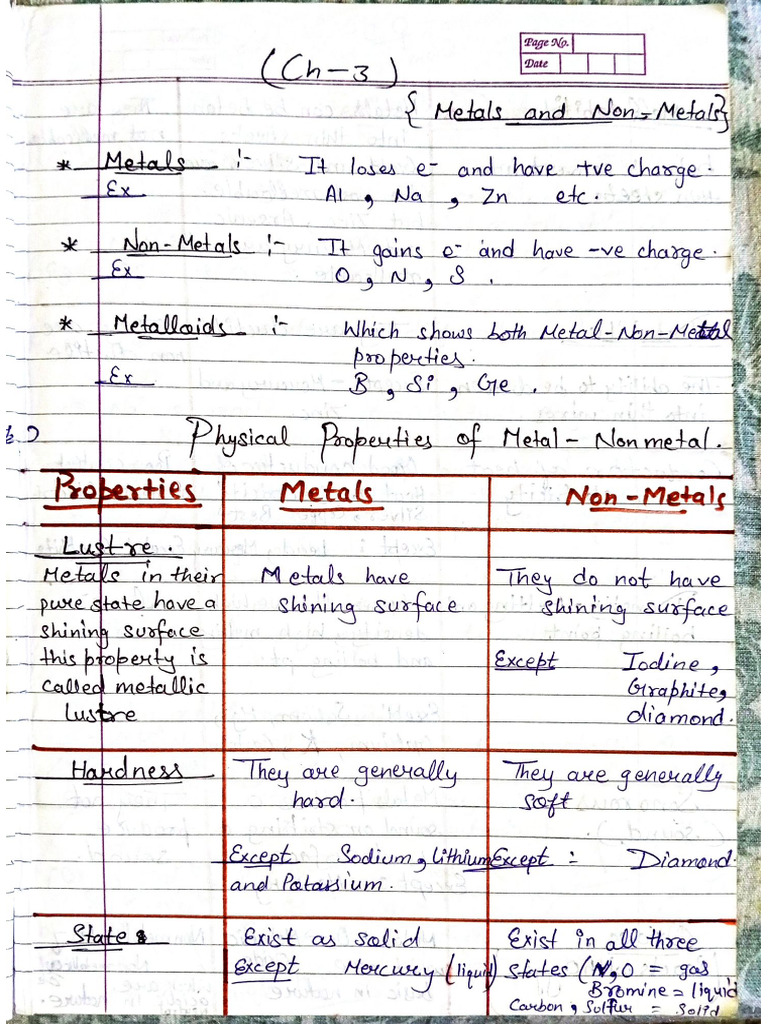 Page No.
Date
(Ch-3)
{ Metals and Non-Metals}
* Metals :- It loses e- and have +ve charge.
Ex Al, Na, Zn etc.
* Non-Metals :- It gains e- and have -ve charge.
Ex O, N, S.
* Metalloids :- Which shows both Metal-Non-Metal
properties.
Ex B, Si, Ge.
Physical Properties of Metal - Nonmetal.
Properties Metals Non-Metals
Lustre.
Metals in their
pure state have a
shining surface
this property is
called metallic
lustre
Metals have
shining surface
They do not have
shining surface
Except Iodine,
Graphite,
diamond.
Hardness
They are generally
hard.
Except Sodium, lithium
and Potassium.
They are generally
soft
Except :- Diamond.
State
Exist as solid
Except Mercury (liquid)
Exist in all three
states (N, O = gas
Bromine = liquid
Carbon, Sulfur = Solid